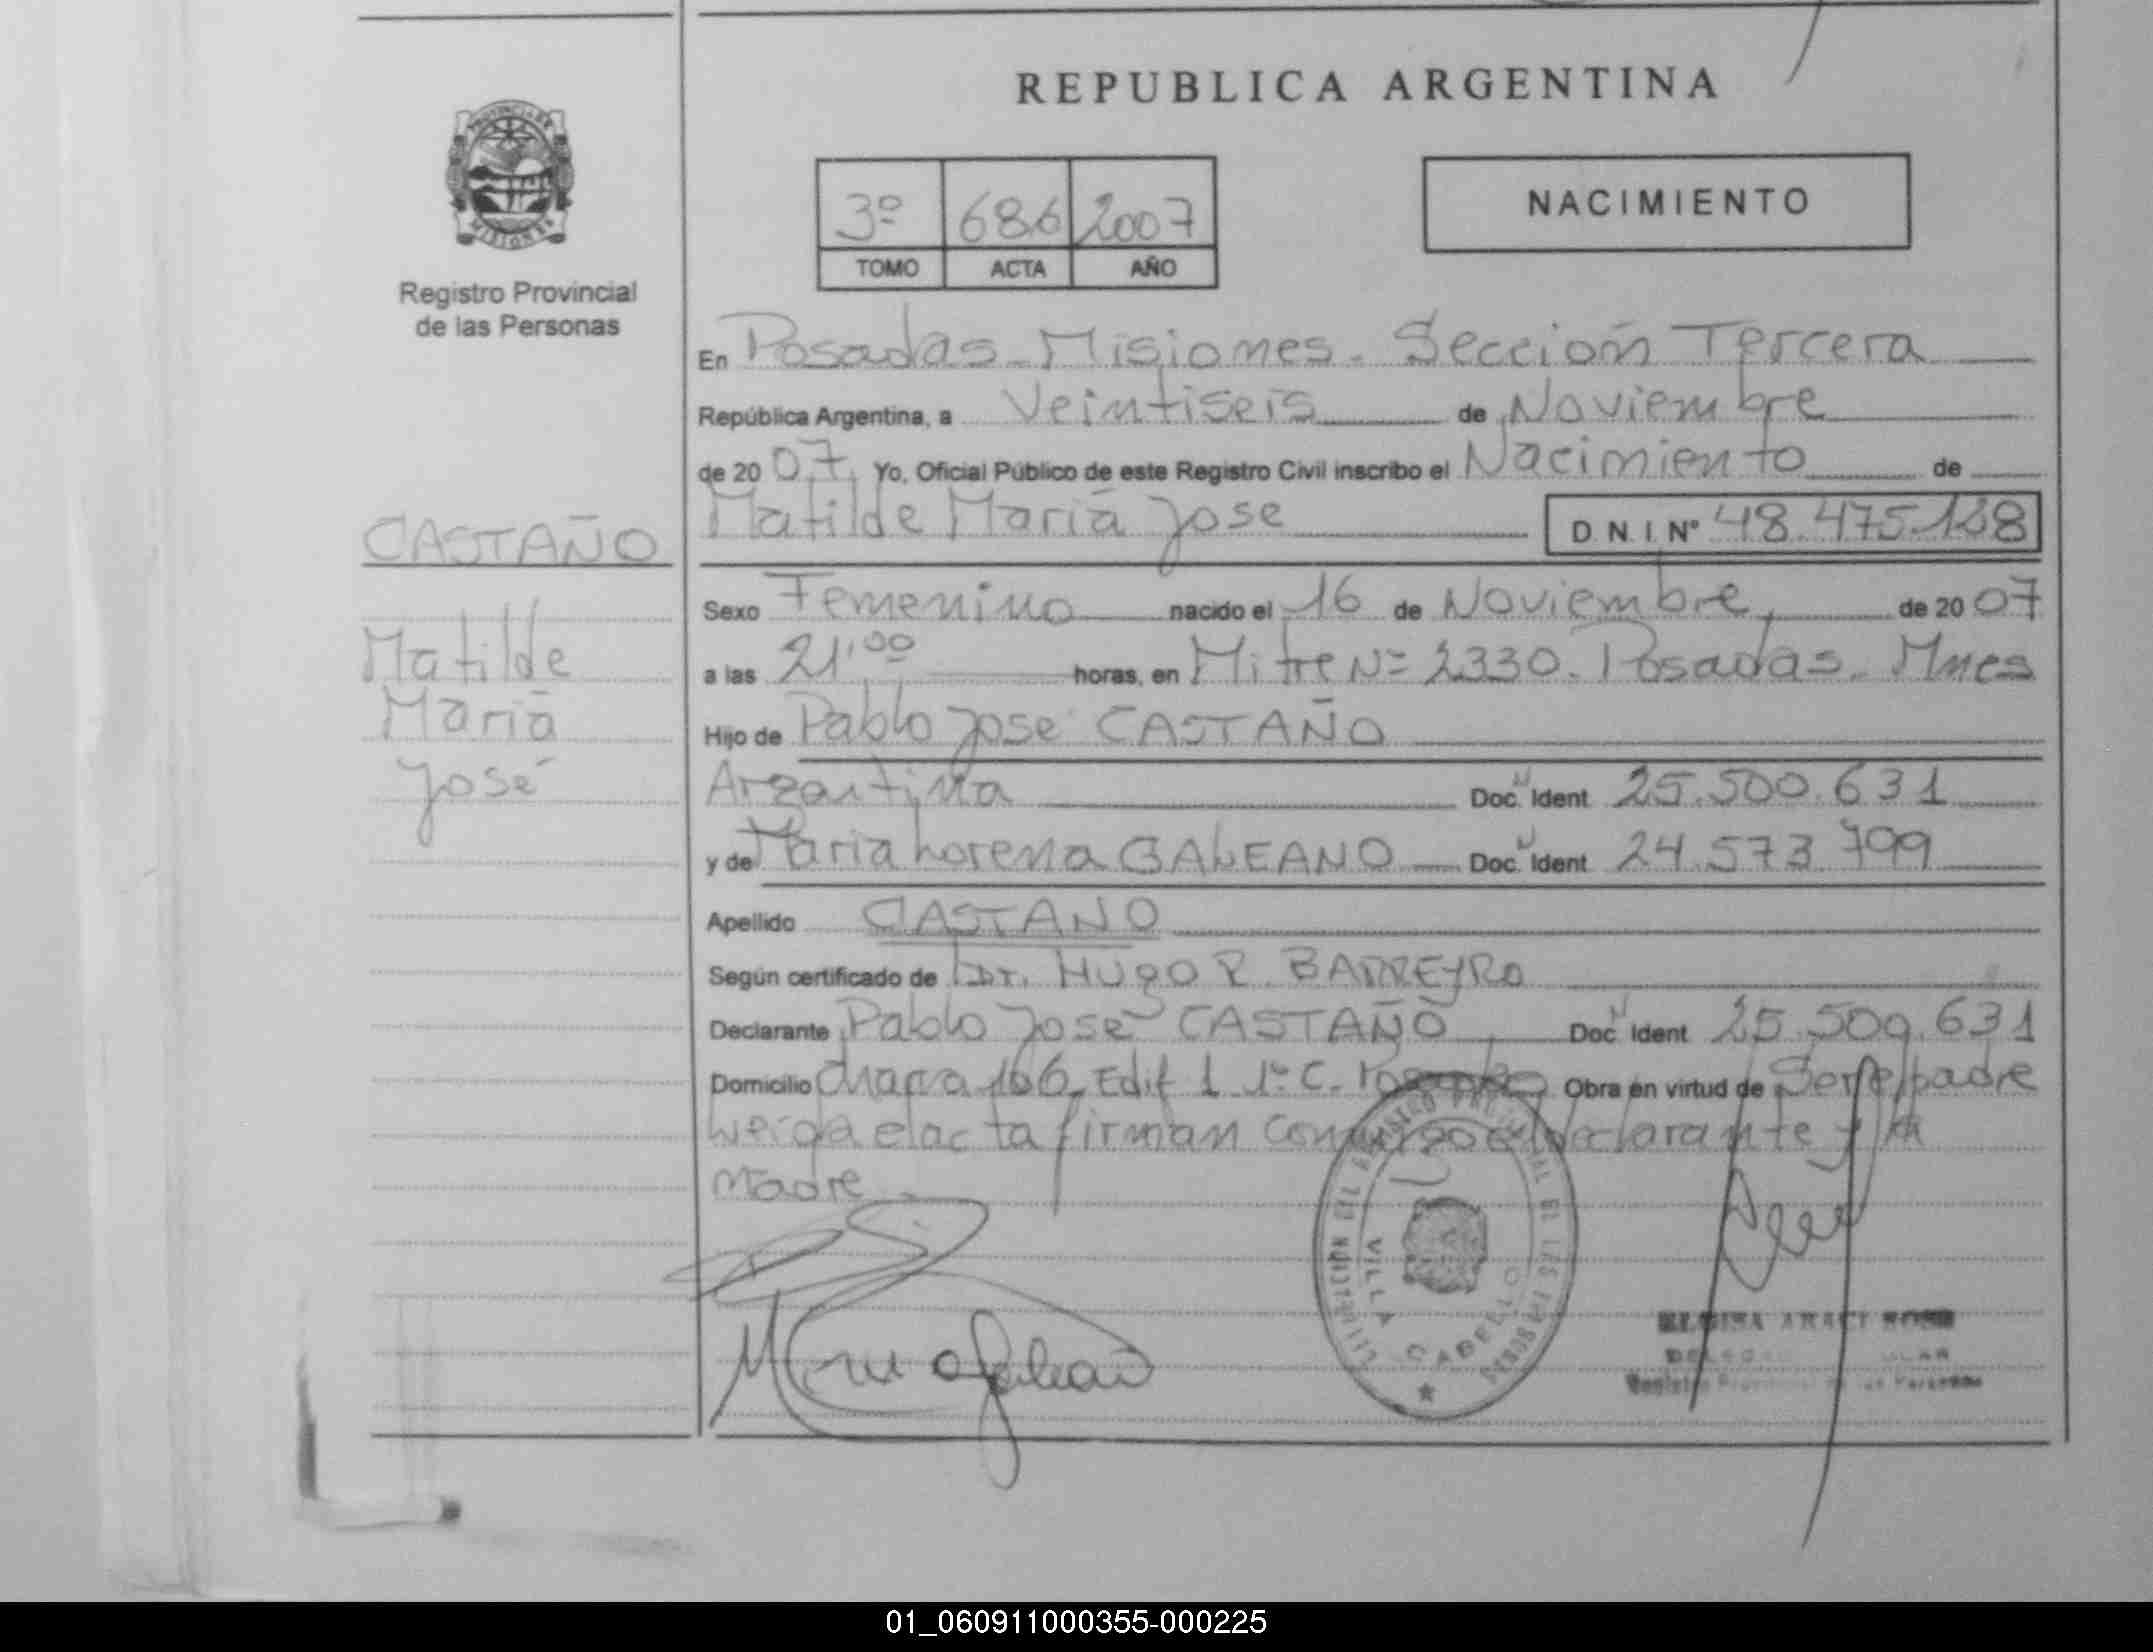 REPUBLICA ARGENTINA
PROVINCIA DE
MISIONES
Registro Provincial
de las Personas
3º 686 2007
TOMO ACTA AÑO
NACIMIENTO
En Posadas - Misiones. Sección Tercera
República Argentina, a Veintiseis de Noviembre
de 20 07. Yo, Oficial Público de este Registro Civil inscribo el Nacimiento de
Matilde María Jose D. N. I. Nº 48.475.128
CASTAÑO
Matilde
María
José
Sexo Femenino nacido el 16 de Noviembre, de 20 07
a las 21,00 horas, en Mitre Nº 2330. Posadas. Mnes
Hijo de Pablo José CASTAÑO
Argentina Doc. Ident 25.500.631
y de María Lorena GALEANO Doc. Ident 24.573.799
Apellido CASTAÑO
Según certificado de Dr. HUGO R. BARREYRO
Declarante Pablo José CASTAÑO Doc Ident 25.500.631
Domicilio Chacra 166 Edif 1 1º C. Obra en virtud de Ser el padre
Leída el acta firman conmigo el declarante y la
madre
VILLA CABELLO
ELOISA ARACI
Registro Provincial de las Personas
01_060911000355-000225